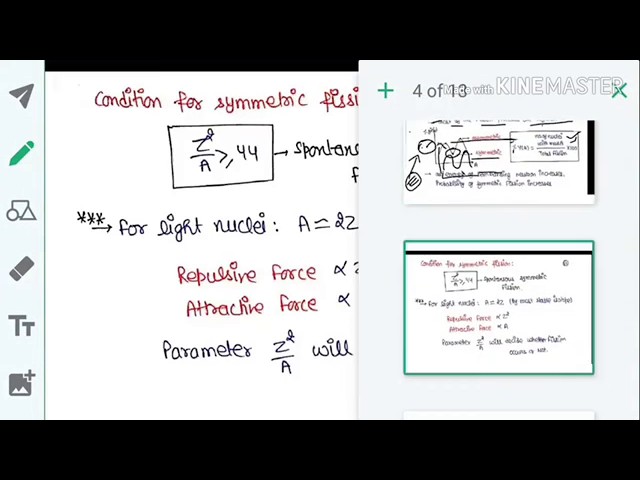 Condition for symmetric fissi
Z²/A ≥ 44 → spontaneous
f
*** → for light nuclei : A ≃ 2Z
Repulsive Force ∝ Z
Attractive Force ∝
Parameter Z²/A will
4 of 13
Made with KINEMASTER
asymmetric
symmetric
Probability of symmetric fission increases.
Condition for symmetric fission:
Z²/A ≥ 44 → spontaneous symmetric
fission.
*** → for light nuclei : A = 2Z (for most stable isotope)
Repulsive Force ∝ Z²
Attractive Force ∝ A
Parameter Z²/A will decide whether fission
occurs or not.
TT